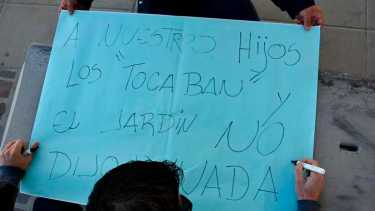 A NUESTROS HIJOS
LOS "TOCABAN" Y
EL JARDIN NO
DIJO NADA